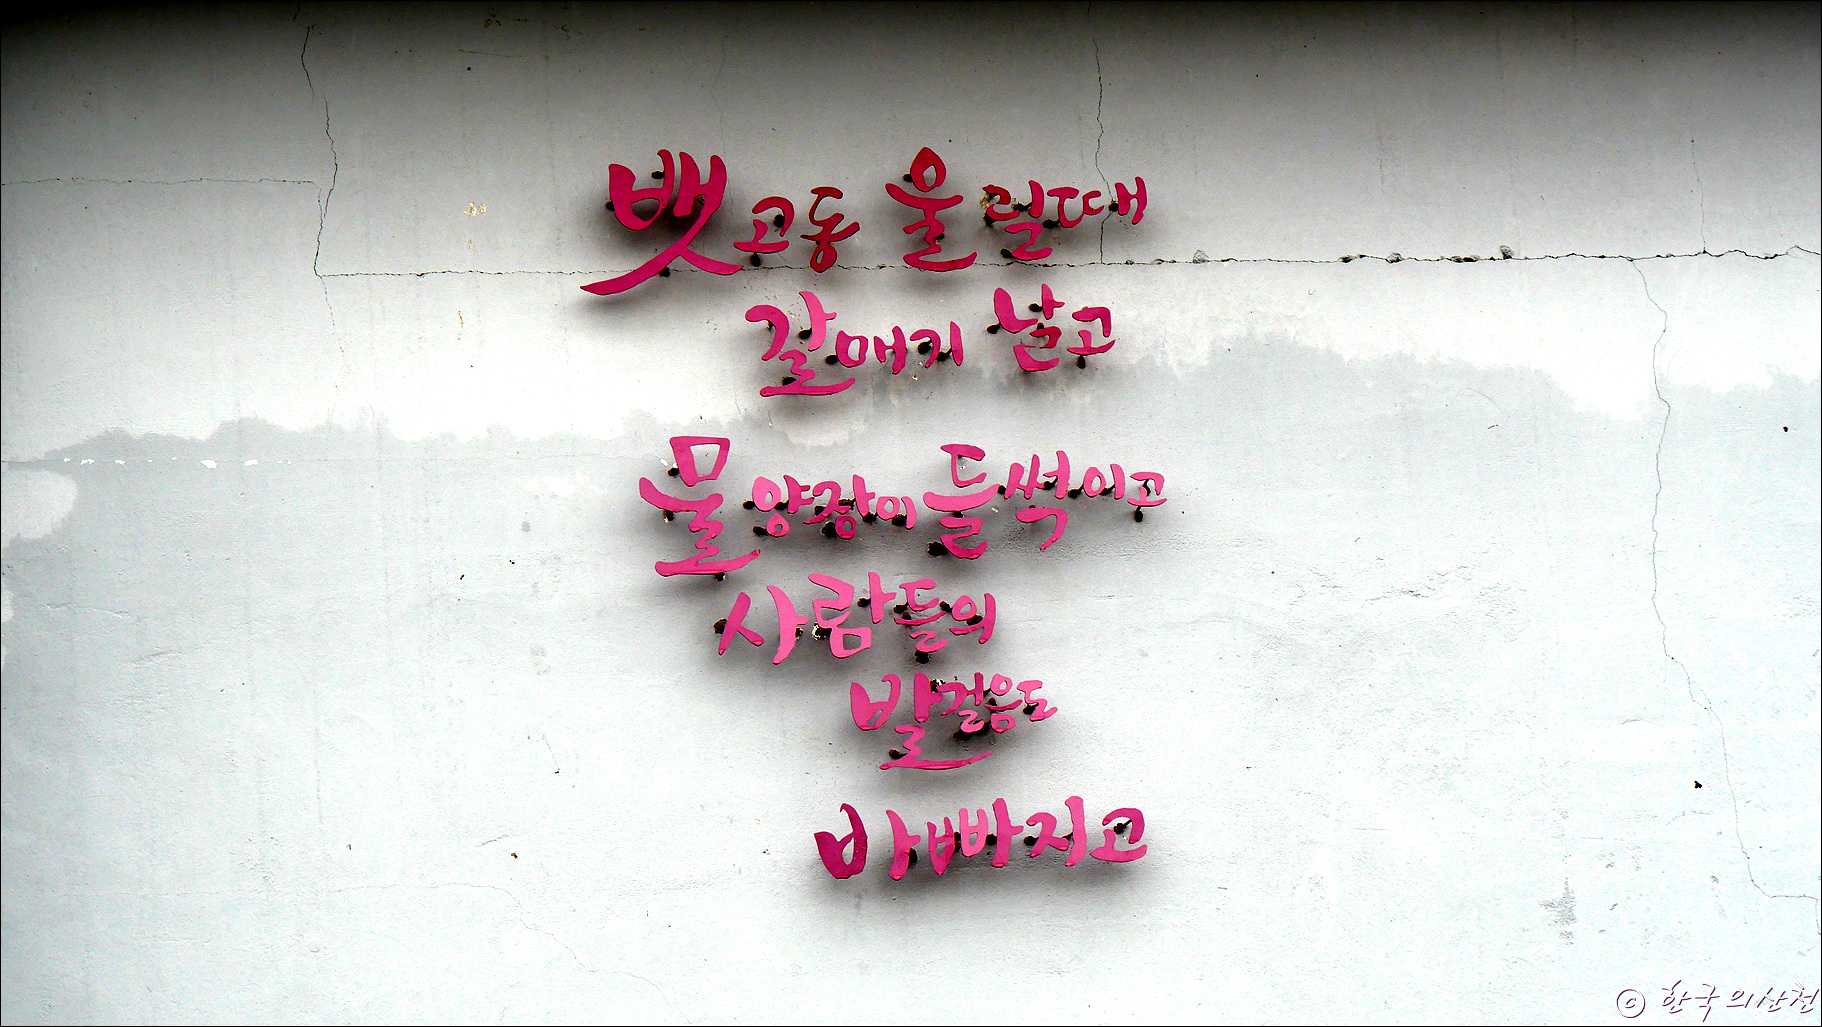 뱃고동 울릴때
갈매기 날고
물양장이 들썩이고
사람들의
발걸음도
바빠지고
© 한국의산천